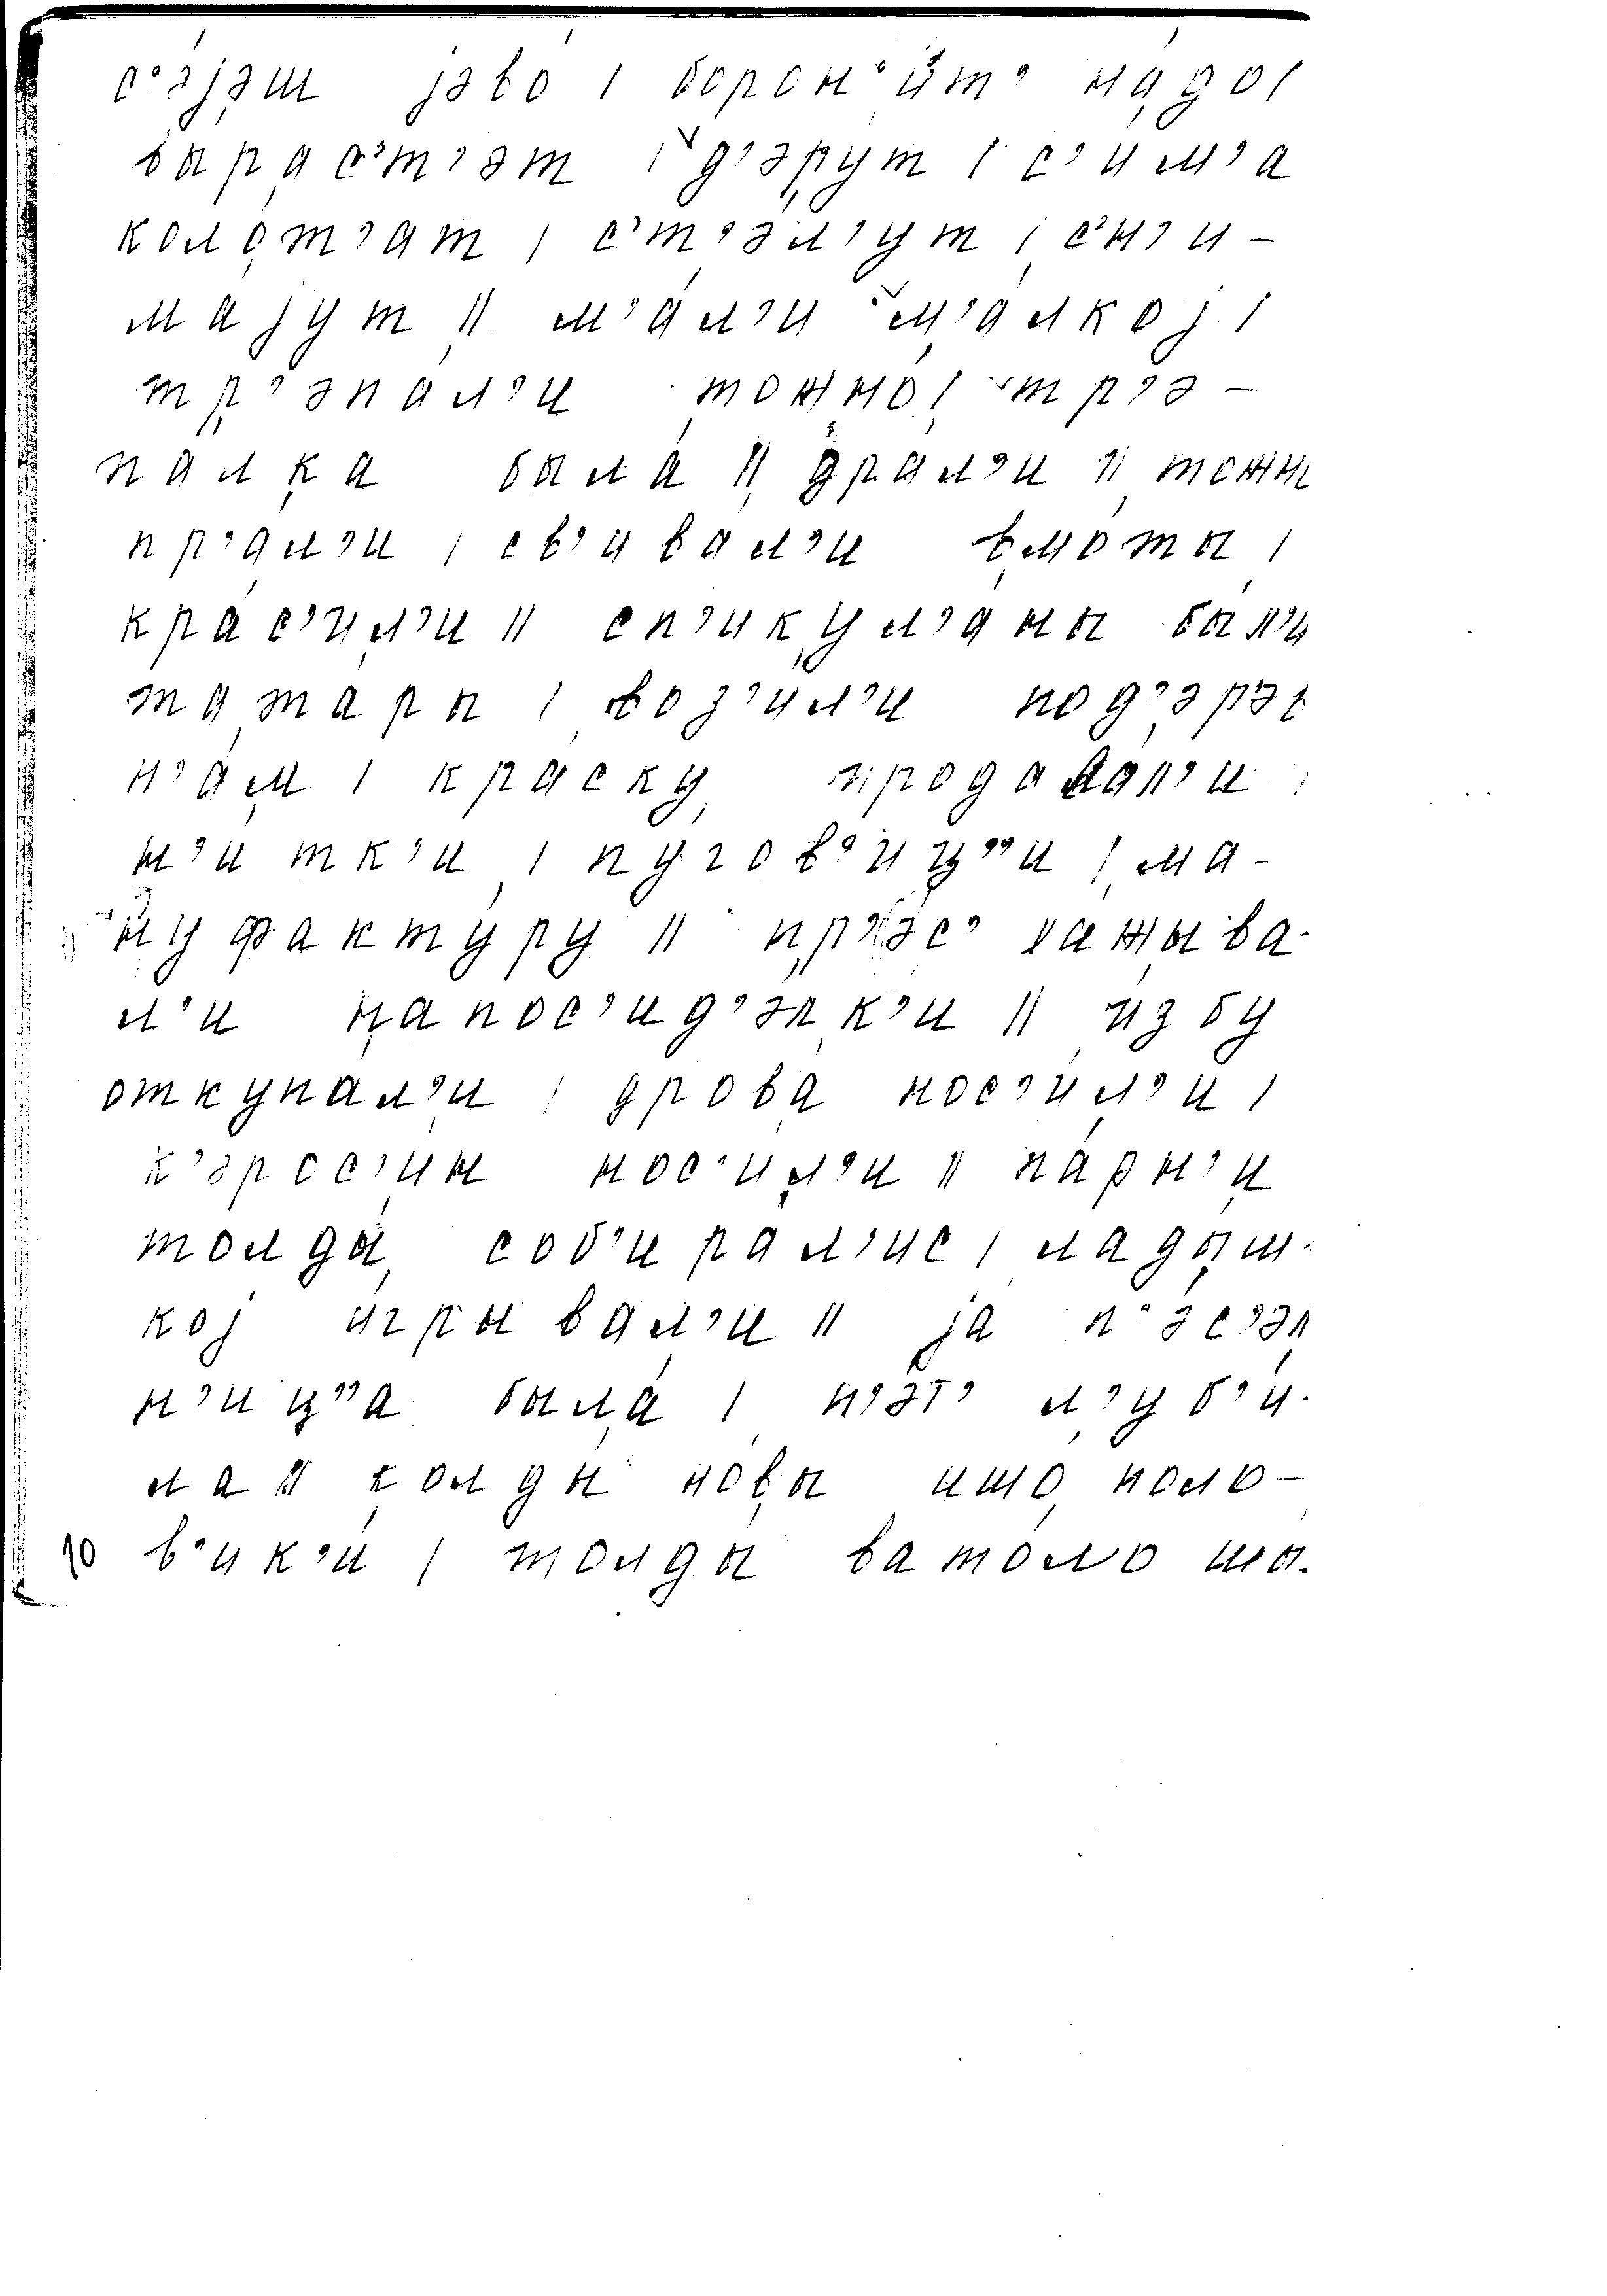 с’э́јэш јэво́ / борон’и́т’ на́до /
вы́рас’т’эт / д’э́рут / с’и́м’а
коло́т’ат / с’т’э́л’ут / с’н’и-
ма́јут // м’а́л’и м’а́лкој /
тр’эпа́л’и то́жно / тр’э-
па́лка была́ // дра́л’и // то́жн
пр’а́л’и / св’ива́л’и вмо́ты /
кра́с’ил’и // сп’икул’а́ны бы́л’и
тата́ры / воз’и́л’и под’эр’э́в
н’а́м / кра́ску продава́л’и /
н’и́тк’и / пу́гов’иц’’и / ма-
нуфакту́ру // пр’эс’ ха́жыва-
л’и напос’ид’э́лк’и // и́збу
откупа́л’и / дрова́ нос’и́л’и /
к’эрос’и́н нос’и́л’и // па́рн’и
толды́ соб’ира́л’ис / лады́ш-
кој и́грывал’и // ја п’э́с’эл
н’иц’’а была́ / п’эт’ л’уб’и́-
ла // колды́ но́вы ишо́ поло-
10 в’ик’и́ / толды́ вато́ло шы-